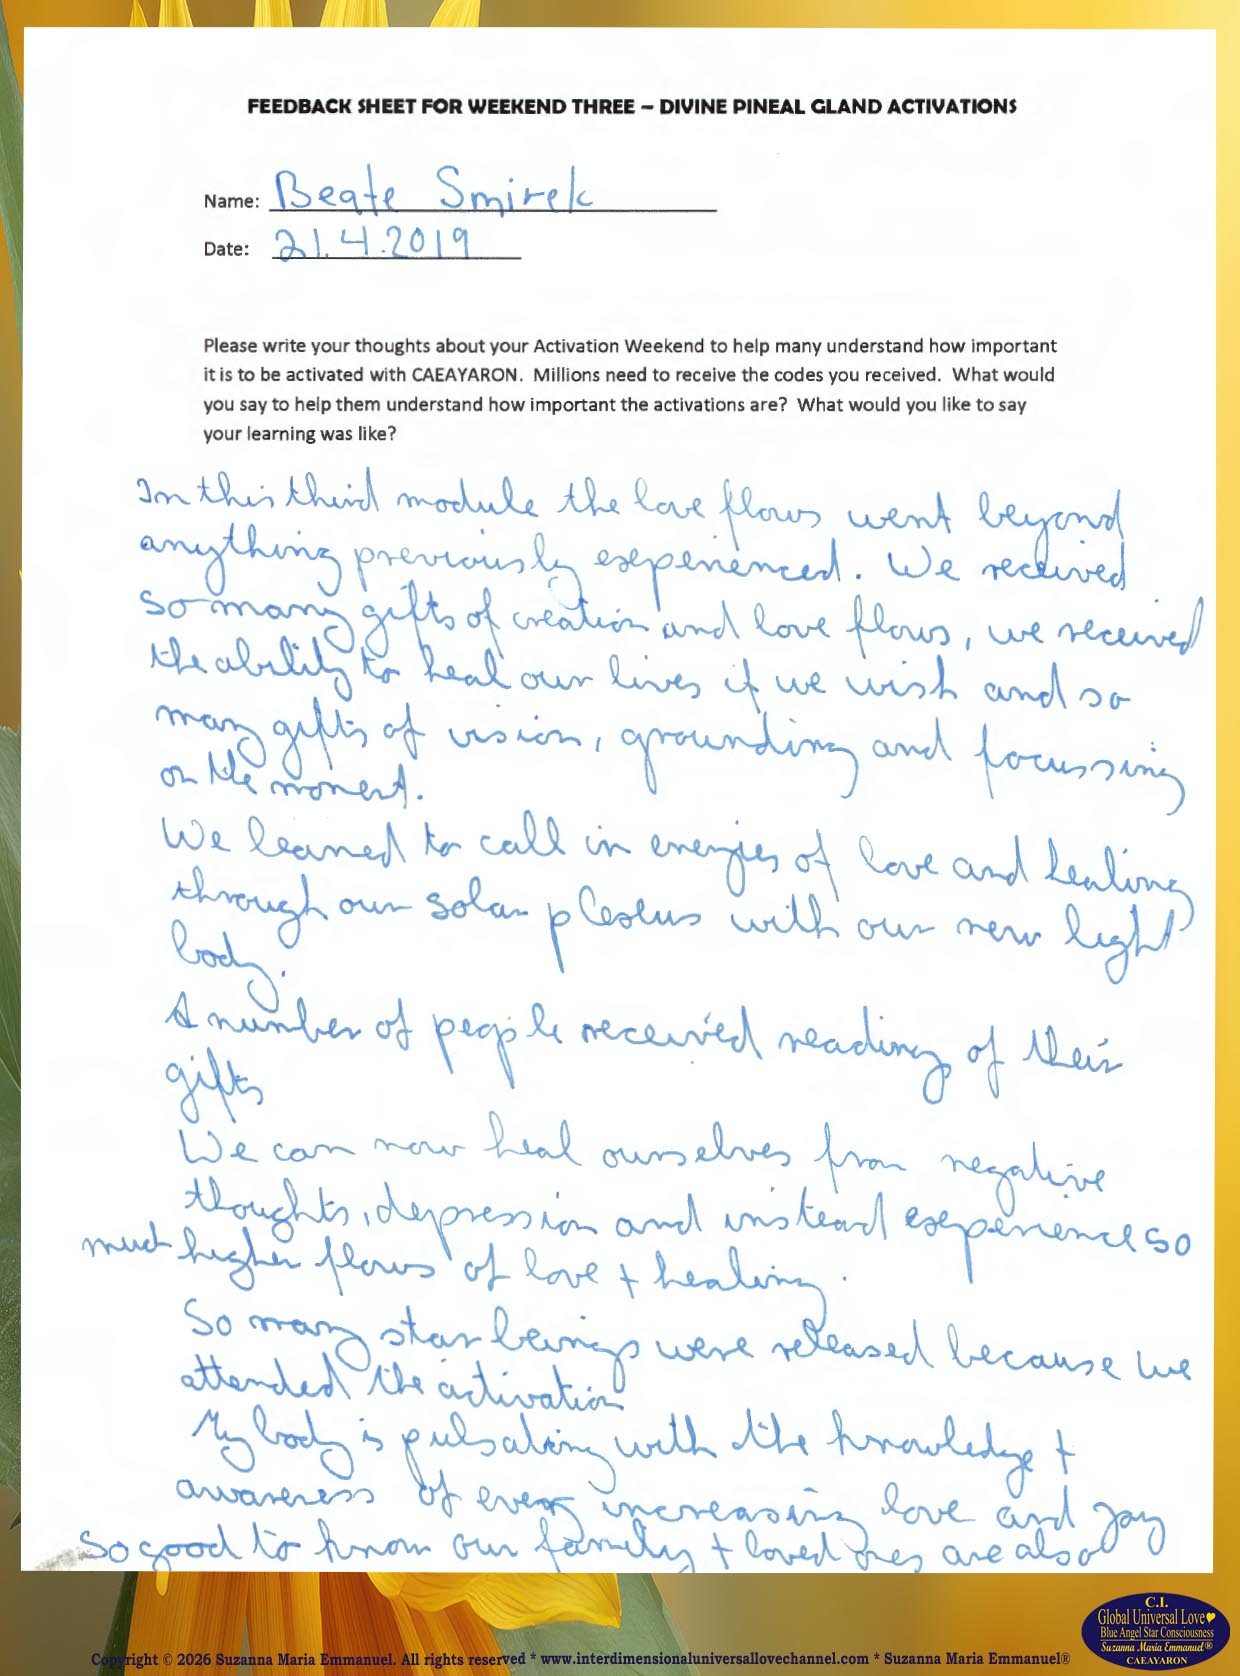 FEEDBACK SHEET FOR WEEKEND THREE – DIVINE PINEAL GLAND ACTIVATIONS
Name: Beate Smirek
Date: 21.4.2019
Please write your thoughts about your Activation Weekend to help many understand how important
it is to be activated with CAEAYARON. Millions need to receive the codes you received. What would
you say to help them understand how important the activations are? What would you like to say
your learning was like?
In this third module the love flows went beyond
anything previously experienced. We received
so many gifts of creation and love flows, we received
the ability to heal our lives if we wish and so
many gifts of vision, grounding and focussing
on the moment.
We learned to call in energies of love and healing
through our solar plexus with our new light
body.
A number of people received reading of their
gifts
We can now heal ourselves from negative
thoughts, depression and instead experience so
much higher flows of love + healing.
So many star beings were released because we
attended the activation
My body is pulsating with the knowledge +
awareness of ever increasing love and joy
So good to know our family + loved ones are also
C.I.
Global Universal Love
Blue Angel Star Consciousness
Suzanna Maria Emmanuel®
CAEAYARON
Copyright © 2026 Suzanna Maria Emmanuel. All rights reserved * www.interdimensionaluniversallovechannel.com * Suzanna Maria Emmanuel®